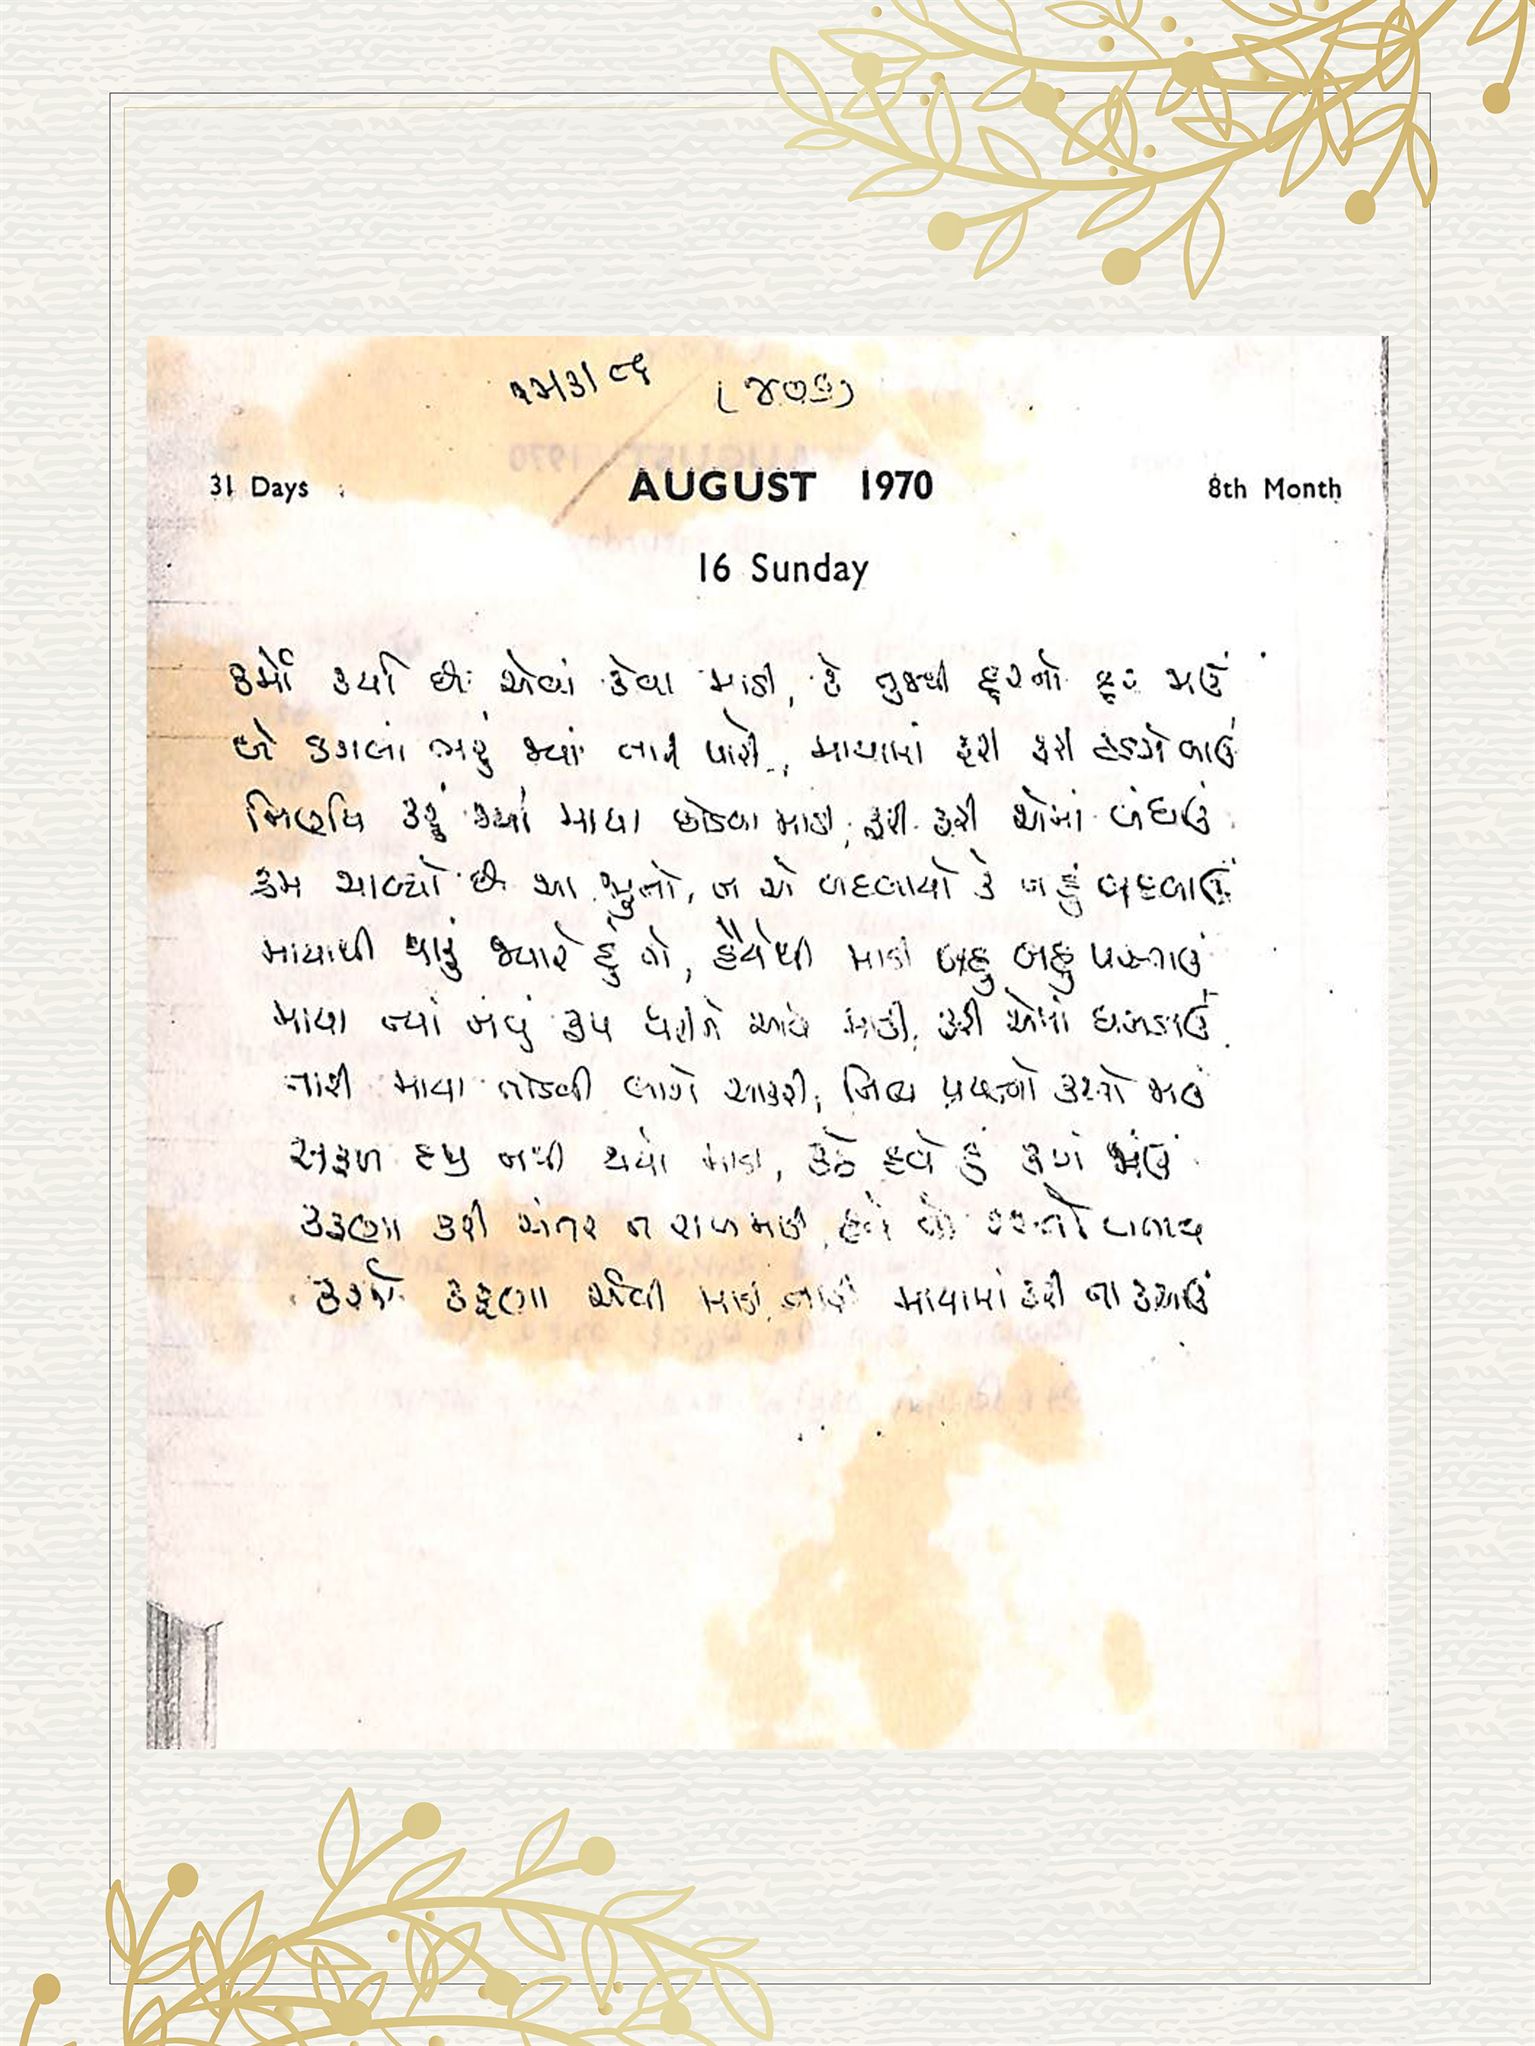 (૪૭૬)
31 Days AUGUST 1970 8th Month
16 Sunday
કર્મો કર્યા છે એવાં કેવા માડી, કે તુજથી દૂરનો દૂર જાઉં
બે ડગલાં ભરું જ્યાં તારી પાસે, માયામાં ફરી ફરી હડસેલાઉં
નિર્ણય કરું જ્યાં માયા છોડવા માડી, ફરી ફરી એમાં બંધાઉં
ક્રમ ચાલ્યો છે આ જુનો, ન એ બદલાયો કે ન હું બદલાઉં
માયાથી થાકું જ્યારે હું તો, હૈયેથી માડી બહુ બહુ પસ્તાઉં
માયા જ્યાં નવું રૂપ ધરીને આવે માડી, ફરી એમાં ધબડાઉં
તારી માયા તોડવી લાગે આકરી, નિત્ય પ્રયત્નો કરતો જાઉં
સફળ હજુ નથી થયો માડી, કહે હવે હું ક્યાં જાઉં
કરુણા કરી અંતર ન રાખ માડી, હવે તો
કરજે કરુણા એવી માડી, તારી માયામાં ફરી ના